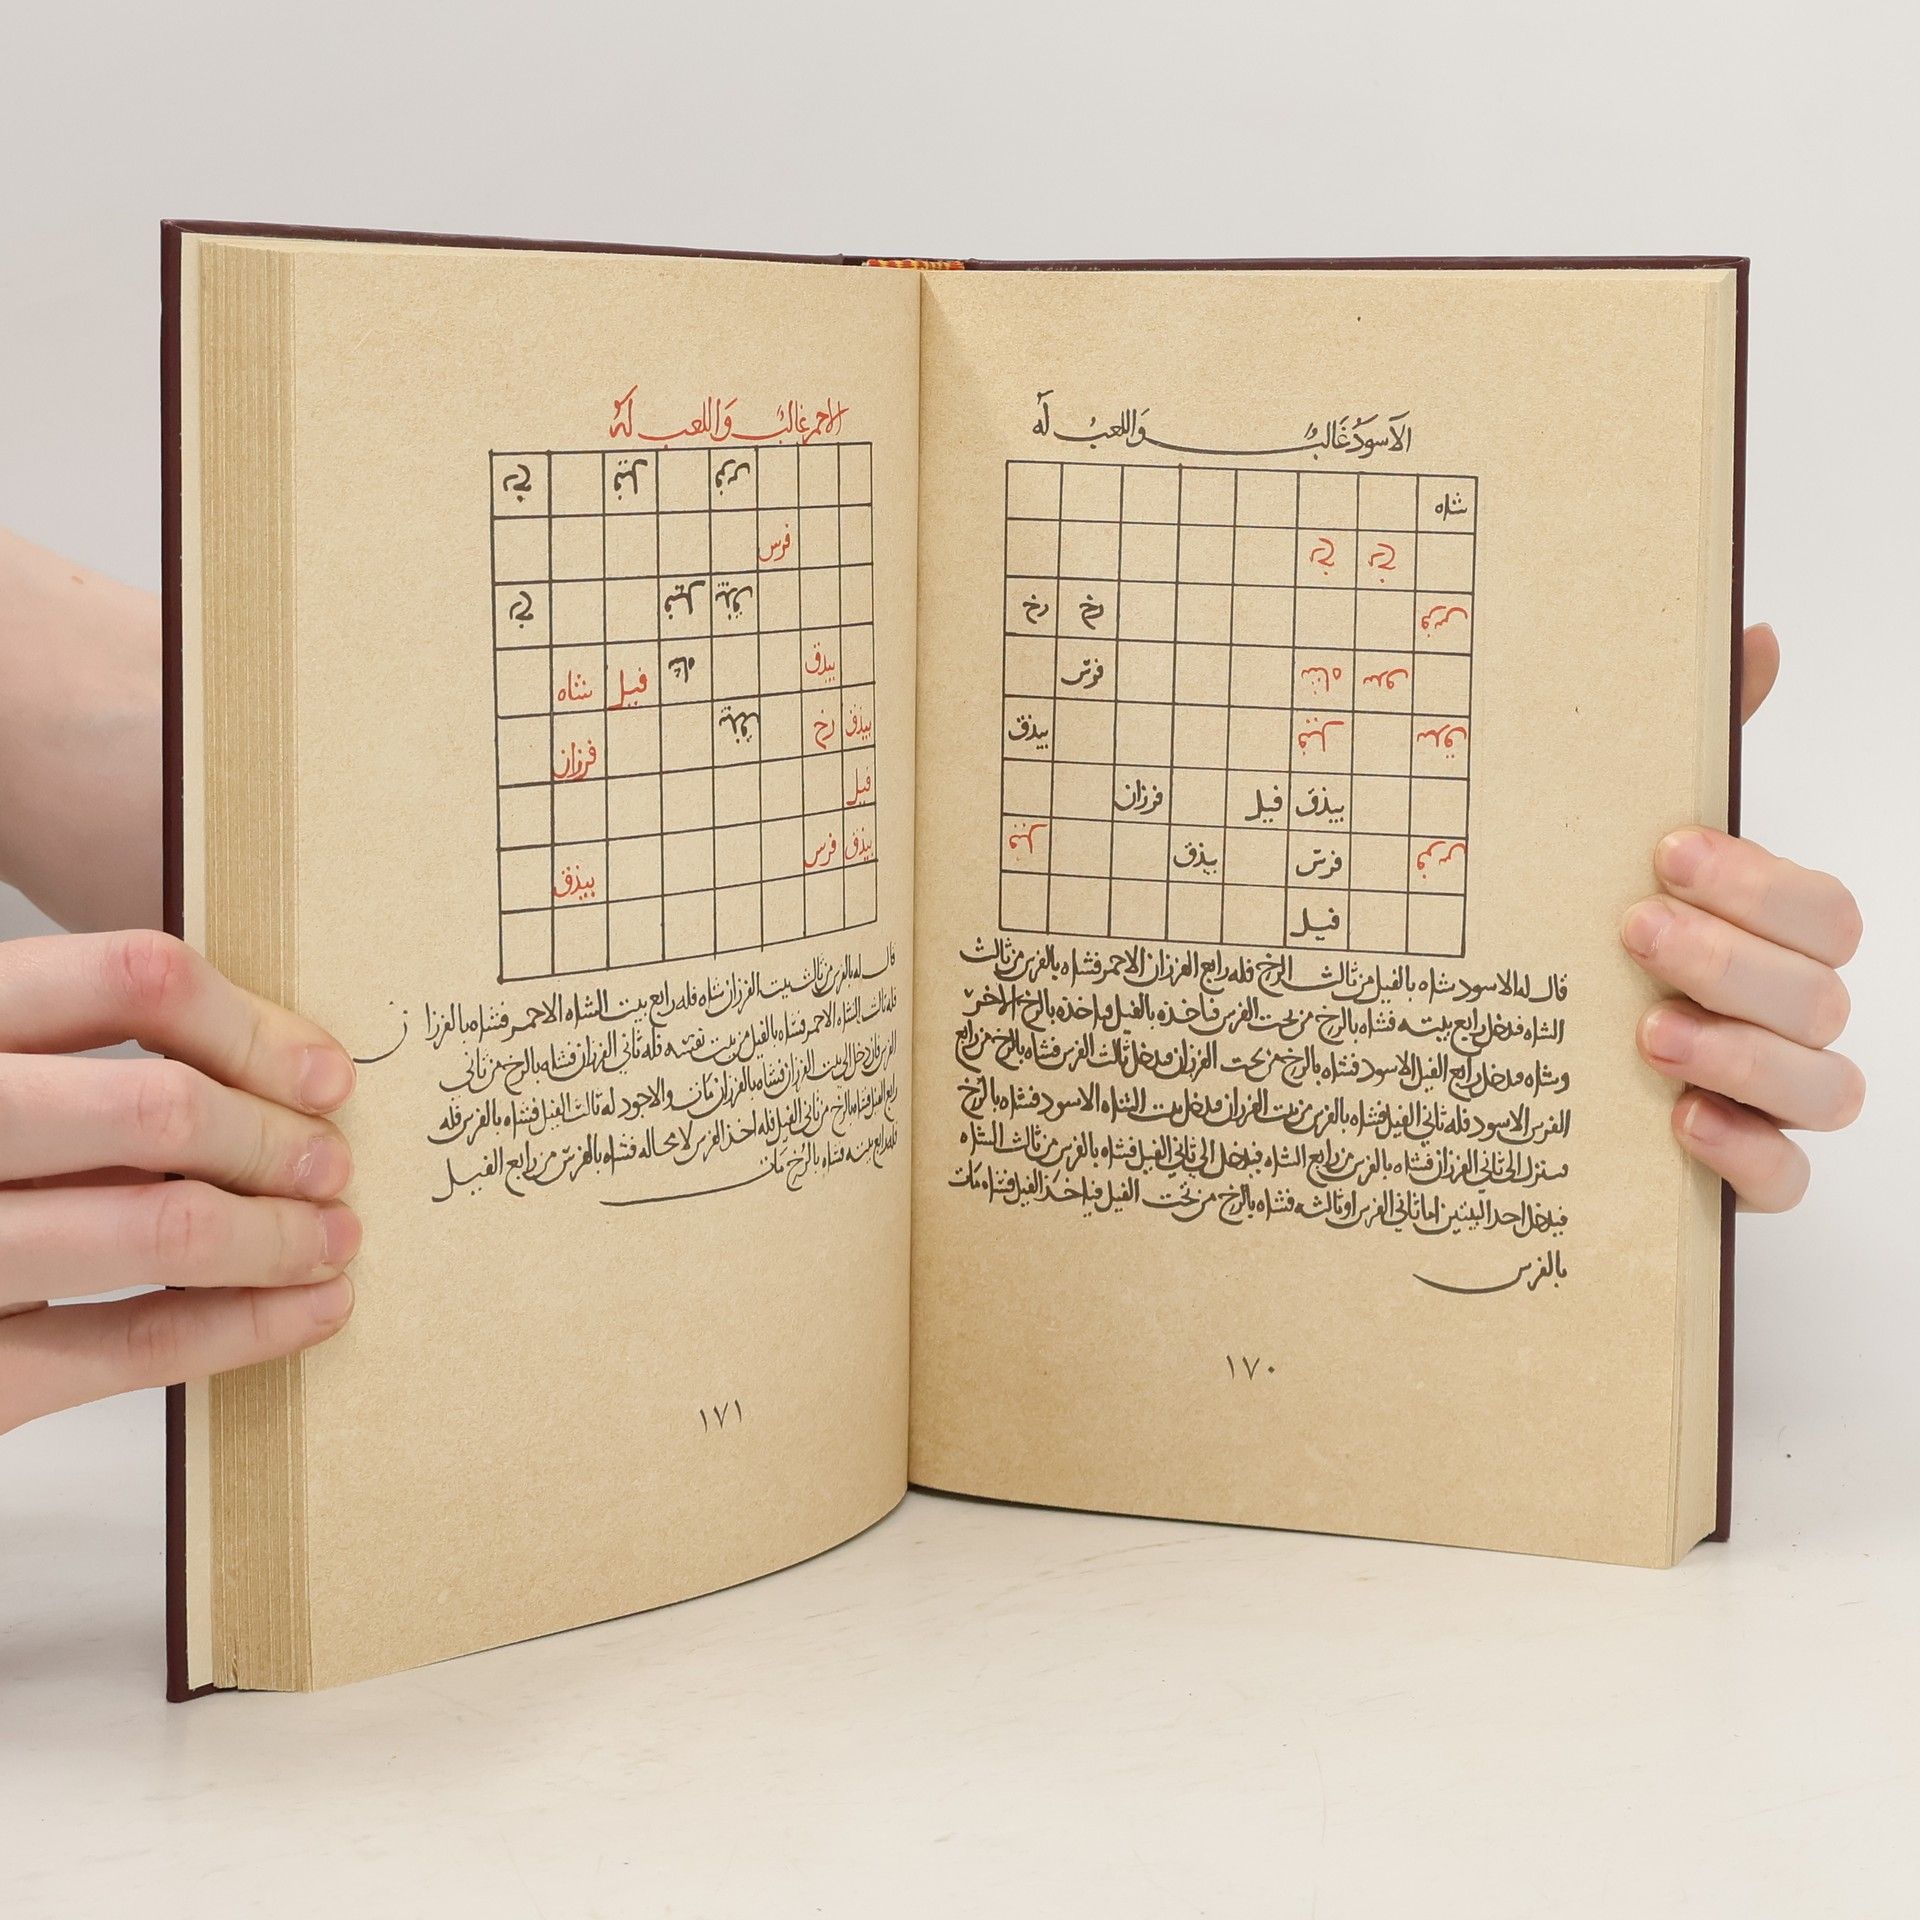 الأسود غالب واللعب له
شاه
رخ رخ
رخ رخ فرس
فرس شاه بيدق
بيذق فيل بيدق
فرزان فيل بيذق
فيل بيذق فرس فرس
فيل
قال له الاسود شاه بالفيل من ثالث الرخ فله رابع الفرزان الاحمر فشاه بالفرس من ثالث
الشاه فدخل رابع بيته فشاه بالرخ من تحت الفرس فاخذه بالفيل فياخذه بالرخ الاخر
وشاه فدخل رابع الفيل الاسود فشاه بالرخ من تحت الفرزان فدخل ثالث الفرس فشاه بالرخ من رابع
الفرس الاسود فله ثاني الفيل فشاه بالفرس من بيت الفرزان فدخل بيت الشاه الاسود فشاه بالرخ
فينزل الى ثاني الفرزان فشاه بالفرس من رابع الشاه فيدخل الى ثاني الفيل فشاه بالفرس من ثالث الشاه
فيدخل احد البيتين اما ثاني الفرس او ثالثه فشاه بالرخ من تحت الفيل فياخذ الفيل فشاه مات
بالفرس
١٧٠
الاحمر غالب واللعب له
رخ فيل فرس
فرس
رخ فيل بيذق
شاه فيل شاه بيذق
فرزان بيذق رخ بيذق
فيل
بيذق فرس بيذق
قال له بالفرس من ثالث بيت الفرزان شاه فله رابع بيت الشاه الاحمر فشاه بالفرزان
فله ثالث الشاه الاحمر فشاه بالفيل من بيت نفسه فله ثاني الفرزان فشاه بالرخ من ثاني
الفرس فان دخل الى بيت الفرزان فشاه بالفرزان مات والاجود له ثالث الفيل فشاه بالفرس فله
رابع الفيل فشاه بالرخ من ثاني الفيل فله اخذ الفرس لا محاله فشاه بالفرس من رابع الفيل
فله رابع بيته فشاه بالرخ مات
١٧١